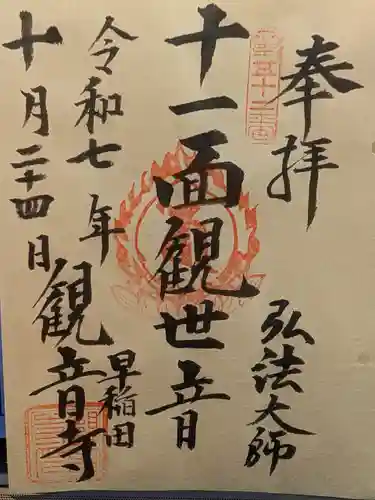 奉拝
弘法大師
十一面観世音
早稲田
観音寺
令和七年
十月二十四日